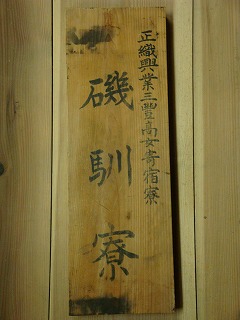 正織興業三豐高女寄宿寮
磯馴寮